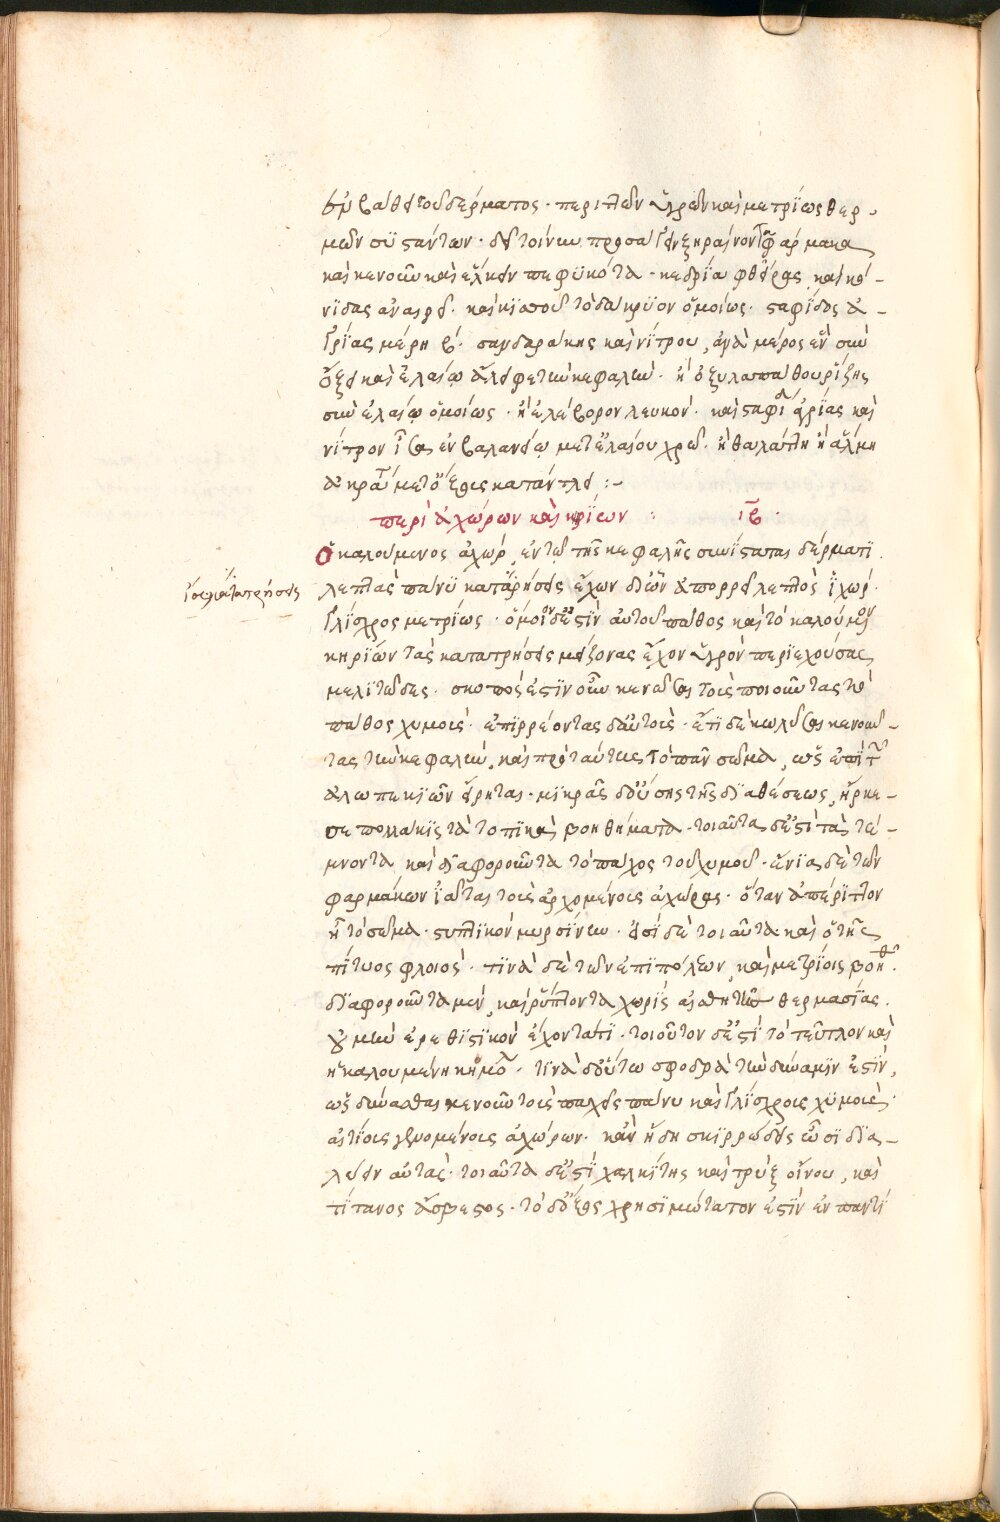 ἐν βάθει τοῦ δέρματος· περιττῶν ὑγρῶν καὶ μετρίως θερ-
μῶν συϊστάντων· δεῖ τοίνυν προσάγειν ξηραίνοντα φάρμακα
καὶ κενοῦν καὶ ἕλκειν πεφϋκότα· κεδρία φθεῖρας καὶ κο-
νίδας ἀναιρεῖ· καὶ κϊσσοῦ τὸ δάκρϋον ὁμοίως· σταφίδος ἀ-
γρίας μέρη β΄· σανδαράκης καὶ νίτρου, ἀνὰ μέρος ἓν σὺν
ὄξει καὶ ἐλαίῳ ἄλειφε τὴν κεφαλήν· ἢ ὀξυλαπάθου ῥίζης
σὺν ἐλαίῳ ὁμοίως· ἢ ἐλέβορον λευκόν· καὶ σταφίδ ἀγρίας καὶ
νίτρον ἐν βαλανείῳ μετ ἐλαίου χρῶ· ἢ θαλάττη ἢ ἅλμη
ἀκρά μετ ὄξους καταντλεῖ :-
περὶ ἀχώρων καὶ κηρίων : ιβ·
Ὁ καλούμενος ἀχώρ, ἐν τῷ τῆς κεφαλῆς συνίσταται δέρματϊ
λεπτὰς πάνϋ κατατρήσεις ἔχων δι ὧν ἀπορρεῖ λεπτὸς ἰχώρ·
γλίσχρος μετρίως· ὅμοιον δέ ἐστϊν αὐτοῦ πάθος καὶ τὸ καλούμενον
κηρίων τὰς κατατρήσεις μείζονας ἔχον ὑγρὸν περϊεχούσας
μελϊτῶδες· σκοπός ἐστϊν οὖν κενῶσαι τοὺς ποιοῦντας τὸ
πάθος χυμούς· ἐπϊρρέοντας δ αὐτοῖς· ἔτϊ δὲ κωλῦσαι κενοῦν-
τας τὴν κεφαλὴν, καὶ πρὸ ταύτης τὸ πᾶν σῶμα, ὡς ἐπὶ τ
ἀλωπεκϊῶν εἴρηται· μϊκρᾶς δ οὔσης τῆς δϊαθέσεως, ἤρκε-
σε πολλάκϊς τὰ τοπϊκὰ βοηθήματα· τοιαῦτα δ ἐστὶ τὰ τέ-
μνοντα καὶ δϊαφοροῦντα τὸ πάχος τοῦ χυμοῦ· ἔνϊα δὲ τῶν
φαρμάκων ἰᾶται τοὺς ἀρχομένους ἀχώρας· ὅταν ἀπέρϊττον
ᾖ τὸ σῶμα· στυπτϊκὸν μυρσίνης· εἰσὶ δὲ τοιαῦτα καὶ ὁ τῆς
πίτυος φλοιός· τϊνὰ δὲ τῶν ἐπϊπόλεων, καὶ μετρίοις βοηθ·
δϊαφοροῦντα μὲν, καὶ ῥύπτοντα χωρϊς αἰσθητῆς θερμασϊας·
οὐ μὴν ἐρεθϊστϊκὸν ἔχοντα τϊ· τοιοῦτον δ ἐστὶ τὸ τεῦτλον καὶ
ἡ καλουμένη κϊμωλ· τϊνὰ δ οὕτω σφοδρὰ τὴν δύναμϊν ἐστϊν,
ὡς δύνασθαι κενοῦν τοὺς παχεῖς πάνυ καὶ γλίσχρους χϋμούς·
αἰτίους γενομένους ἀχώρων· κἂν ἤδη σκϊρρώδεις ὦσϊ δϊα-
λύειν αὐτάς· τοιαῦτα δ ἐστὶ χαλκῖτης καὶ τρὺξ οἴνου, καὶ
τίτανος ἄσβεστος· τὸ δ ὄξος χρησϊμώτατον ἐστϊν ἐν παντὶ